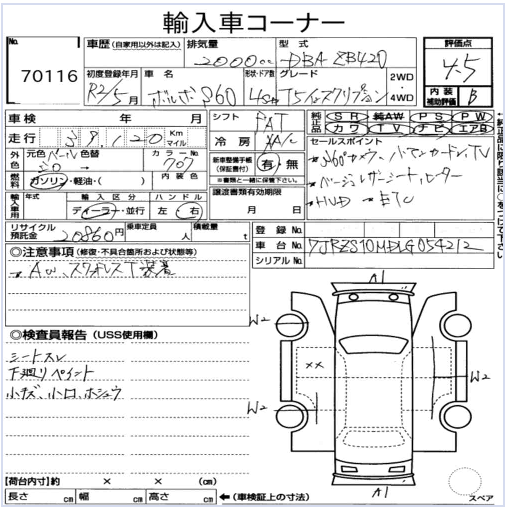 輸入車コーナー
No.
70116
車歴 (自家用以外は記入)
排気量
2000cc
型式
DBA ZB420
評価点
4.5
初度登録年月
R2/5月
車名
ボルボ S60
形状・ドア数
4S
グレード
T5インスクリプション
2WD
4WD
内装
補助評価
B
車検
年 月
走行
39,120
Km
マイル
シフト
FAT
冷房
AAC
純正品
SR
純AW
PS
PW
カワ
TV
ナビ
エアB
←純正品に限り該当に○をつけて下さい
外色
元色 パール
色替
カラーNo.
707
燃料
ガソリン・軽油・( )
内装色
新車整備手帳
(保証書付)
有・無
※書類と一緒に保管して下さい。
セールスポイント
→360°カメラ、
→ベージュレザーシート、ヒーター
→HUD →ETC
輸入車用
年式
輸入区分
ディーラー・並行
ハンドル
左・右
譲渡書類有効期限
月 日
リサイクル
預託金
20860円
乗車定員
人
積載量
t
登録No.
車台No.
7JRZS10MDLG054212
シリアルNo.
◎注意事項 (修復・不具合箇所および状態等)
→AW、スタッドレスT装着
◎検査員報告 (USS使用欄)
シートスレ
下廻りペイント
小キズ、小凹、ホシュウ
A1
W2
××
W2
W2
A1
スペア
【荷台内寸】約 × × (cm)
長さ cm 幅 cm 高さ cm ←(車検証上の寸法)